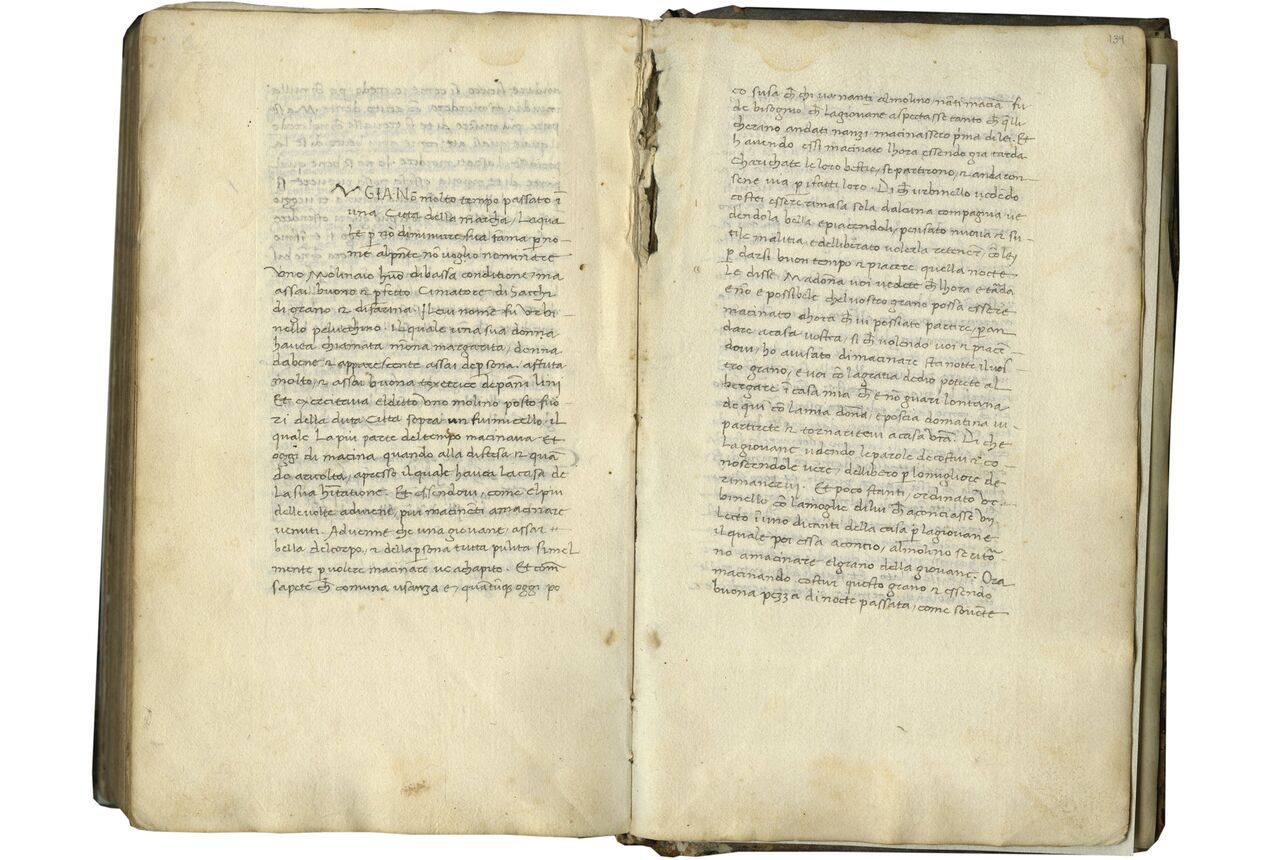 GIAÑ õ molto tempo passato ĩ
una Citta della marcha, Laqua
le p nõ diminuire sua fama p no
me alpñte nõ voglio nominare
Uno Molinaio huõ di bassa conditione, ma
assai buono et pfecto Cimatore di Sacchi
di grano et di farina. Il cui nome fu Urbi
nello peluchino. il quale una sua donna
havea chiamata mõna margarita, donna
dabene et apparescente assai depsona. astuta
molto, et assai buona texetrice depãni lini
Et exercitava el ditto uno molino posto fuo
ri della ditta Citta sopra un fiumicello, il
quale la piu parte del tempo macinava Et
oggi di macina quando alla distesa et quã
do aricolta, apresso il quale havea la casa de
la sua hĩtatione. Et essendovi, come el piu
delle volte adviene, piu macineti amacinare
venuti. Advenne che una giovane, assai
bella del corpo, et della psona tutta pulita simel
mente p volere macinare ve achapito. Et com
sapete ch̃ comuna usanza e, quãtũq oggi po
134
co susa ch̃ chi va nanti al molino nãti macia fu
de bisogno ch̃ lagiovane aspectasse tanto ch̃ q̃lli
cherano andati nanzi macinassero pma de lei. Et
havendo essi macinate lhora essendo gia tarda
Charichate le loro bestie, se partirono, et andaron
sene via p i fatti loro. Di ch̃ urbinello vedẽdo
costei essere rimasa sola dalcuna compagnia ve
dendola bella e piacendoli, pensato nuova et su
tile malitia, e delliberato volerla retener, cõ lei
p darsi buon tempo et piacere quella nocte
Le disse. Madõna voi vedete ch̃ lhora e tãda
e nõ e possibele chel vostro grano possa essere
macinato ahora ch̃ vi possiate partire, p an
dare a casa vostra, si ch̃ volendo voi et piacẽ
dovi, ho avisato di macinare sta notte il vos
tro grano, e voi cõ la gratia de dio potete al
bergare ĩ casa mia ch̃ e nõ guari lontana
de qui cõ la mia dõna, e poscia domatina vi
partirete et tornaritevi a casa vr̃a. Di che
La giovane udendo le parole de costui et co
noscendole vere, dellibero p lo migliore de
rimanervi. Et poco stanti, ordinato Ur
binello cõ la moglie di lui ch̃ aconciasse un
Lecto ĩ uno di canti della casa p la giovane
il quale poi essa aconcio, al molino se ritõ
no a macinare el grano della giovane. Ora
macinando costui questo grano et essendo
buona pezza di nocte passata, come sovẽte